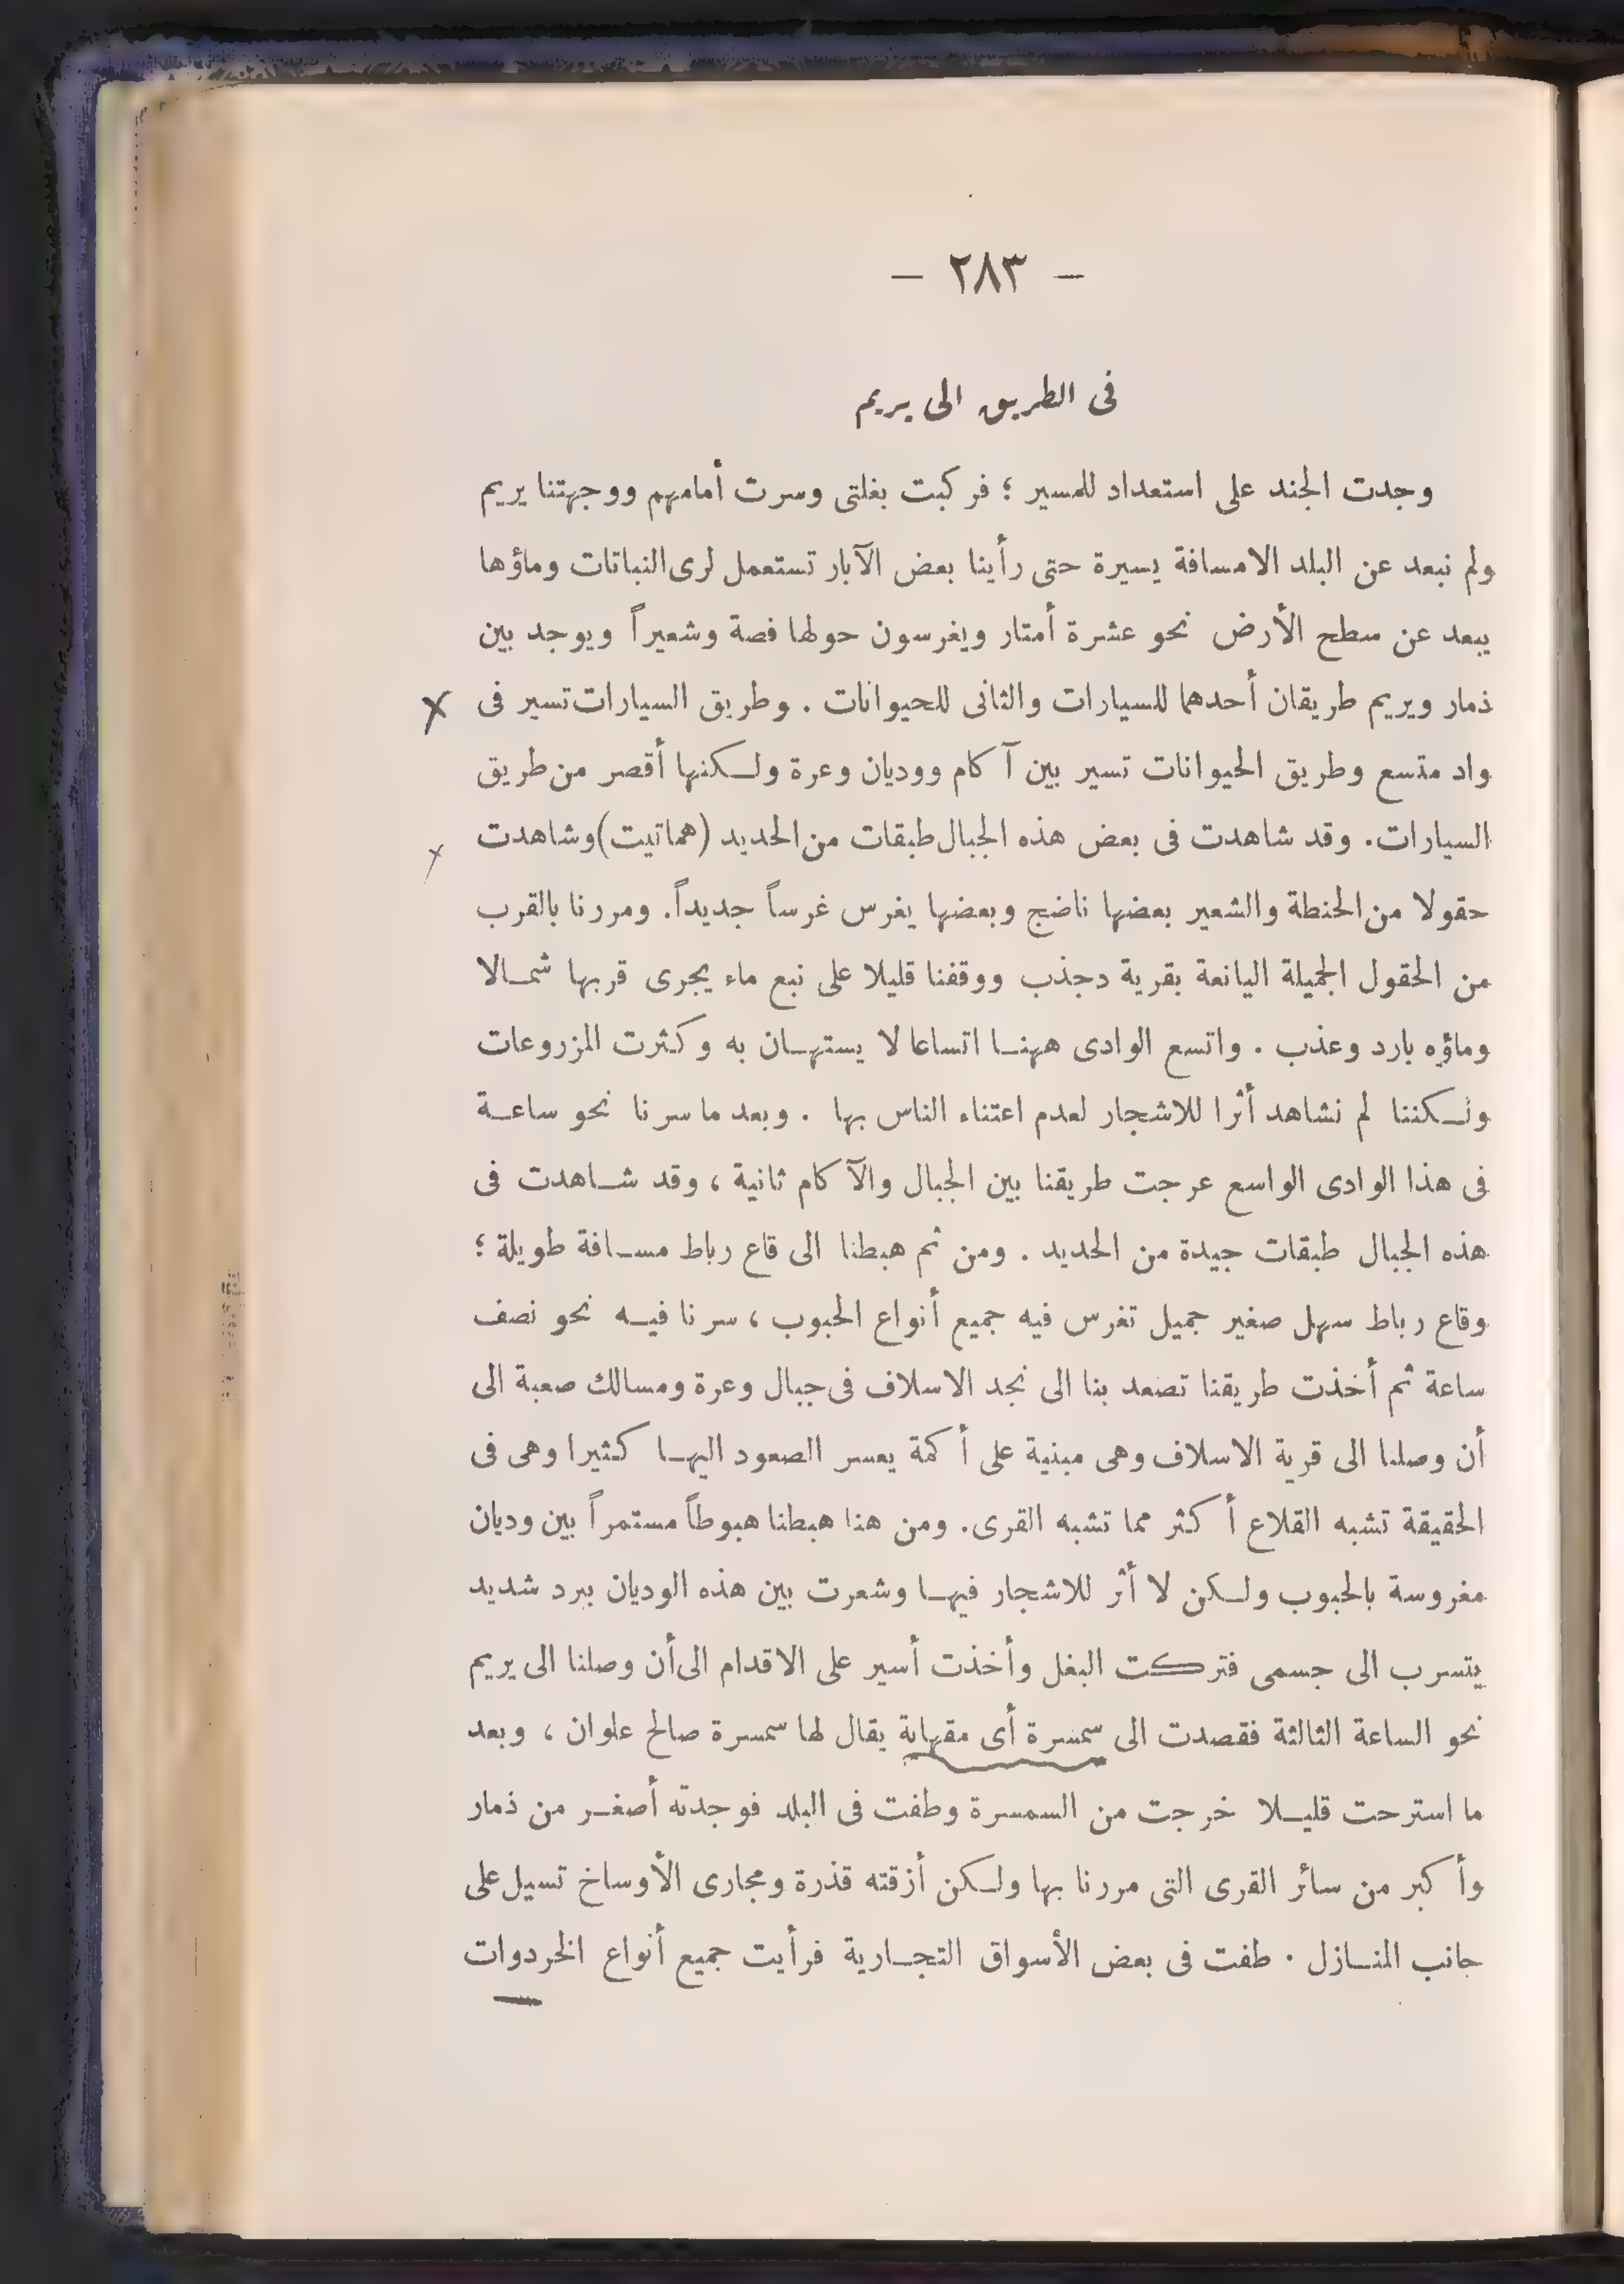 — ٢٨٣ —
فى الطريق الى يريم
وجدت الجند على استعداد للمسير ؛ فركبت بغلتى وسرت أمامهم ووجهتنا يريم
ولم نبعد عن البلد الا مسافة يسيرة حتى رأينا بعض الآبار تستعمل لرى النباتات وماؤها
يبعد عن سطح الأرض نحو عشرة أمتار ويغرسون حولها فصة وشعيراً ويوجد بين
ذمار ويريم طريقان أحدهما للسيارات والثانى للحيوانات . وطريق السيارات تسير فى
واد متسع وطريق الحيوانات تسير بين آكام ووديان وعرة ولكنها أقصر من طريق
السيارات. وقد شاهدت فى بعض هذه الجبال طبقات من الحديد (هماتيت) وشاهدت
حقولا من الحنطة والشعير بعضها ناضج وبعضها يغرس غرساً جديداً. ومررنا بالقرب
من الحقول الجميلة اليانعة بقرية دجذب ووقفنا قليلا على نبع ماء يجرى قربها شمالا
وماؤه بارد وعذب . واتسع الوادى ههنا اتساعا لا يستهان به وكثرت المزروعات
ولكننا لم نشاهد أثرا للاشجار لعدم اعتناء الناس بها . وبعد ما سرنا نحو ساعة
فى هذا الوادى الواسع عرجت طريقنا بين الجبال والآكام ثانية ، وقد شاهدت فى
هذه الجبال طبقات جيدة من الحديد . ومن ثم هبطنا الى قاع رباط مسافة طويلة ؛
وقاع رباط سهل صغير جميل تغرس فيه جميع أنواع الحبوب ، سرنا فيه نحو نصف
ساعة ثم أخذت طريقنا تصعد بنا الى نجد الاسلاف فى جبال وعرة ومسالك صعبة الى
أن وصلنا الى قرية الاسلاف وهى مبنية على أكمة يعسر الصعود اليها كثيرا وهى فى
الحقيقة تشبه القلاع أكثر مما تشبه القرى. ومن هنا هبطنا هبوطاً مستمراً بين وديان
مغروسة بالحبوب ولكن لا أثر للاشجار فيها وشعرت بين هذه الوديان ببرد شديد
يتسرب الى جسمى فتركت البغل وأخذت أسير على الاقدام الى أن وصلنا الى يريم
نحو الساعة الثالثة فقصدت الى سمسرة أى مقهاية يقال لها سمسرة صالح علوان ، وبعد
ما استرحت قليلا خرجت من السمسرة وطفت فى البلد فوجدته أصغر من ذمار
وأكبر من سائر القرى التى مررنا بها ولكن أزقته قذرة ومجارى الأوساخ تسيل على
جانب المنازل . طفت فى بعض الأسواق التجارية فرأيت جميع أنواع الخردوات